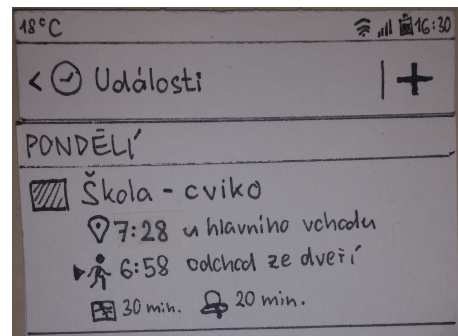 18°C 16:30
< Události +
PONDĚLÍ
Škola - cviko
7:28 u hlavního vchodu
6:58 odchod ze dveří
30 min. 20 min.